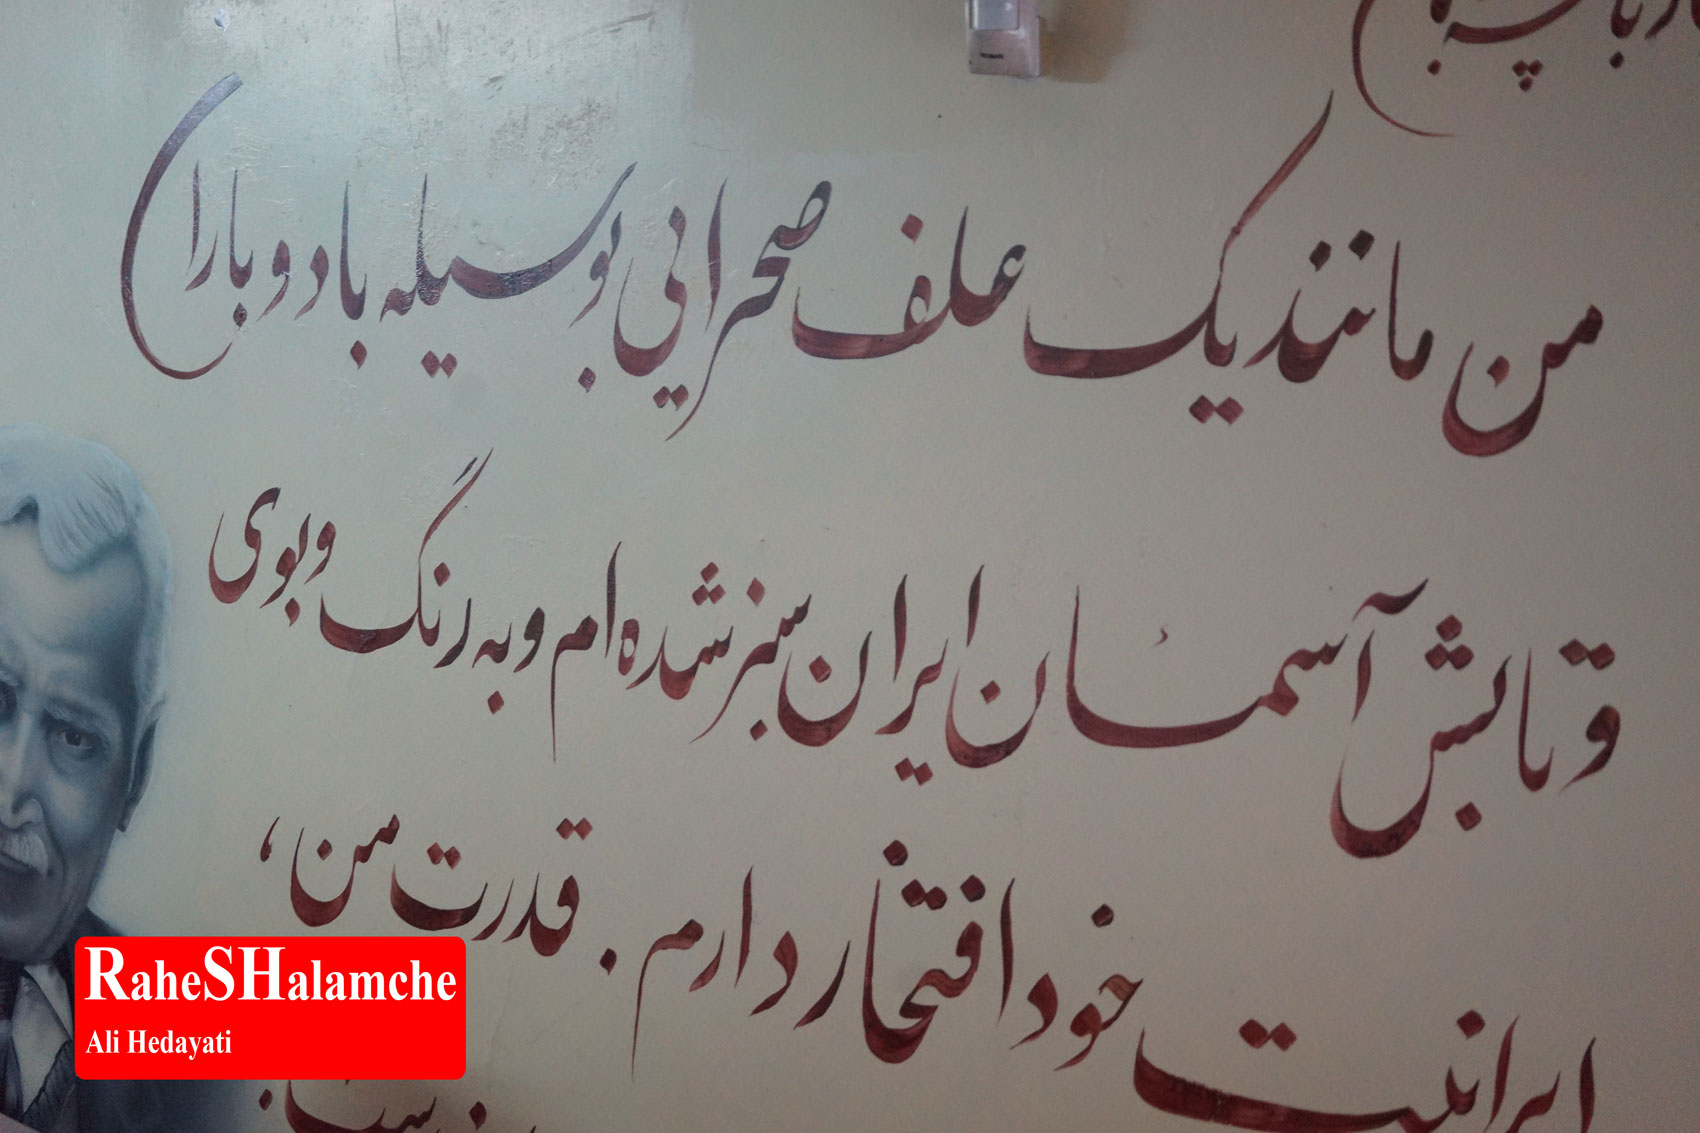 من مانند یک علف صحرایی بوسیله باد و باران
و تابش آسمان ایران سبز شده ام و به رنگ و بوی
ایرانیت خود افتخار دارم . قدرت من ،
RaheSHalamche
Ali Hedayati